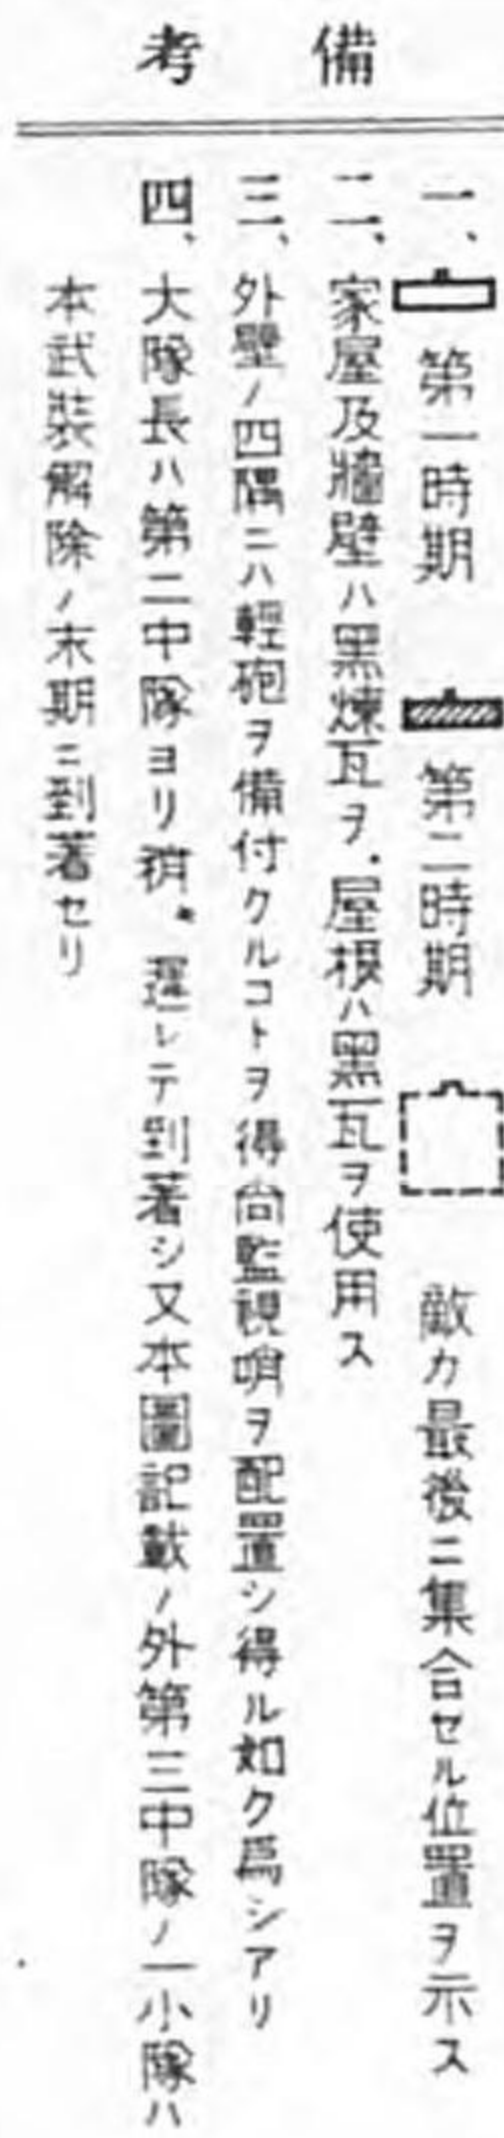 備考
一、第一時期 第二時期 敵カ最後ニ集合セル位置ヲ示ス
二、家屋及牆壁ハ黑煉瓦ヲ、屋根ハ黑瓦ヲ使用ス
三、外壁ノ四隅ニハ輕砲ヲ備付クルコトヲ得尙監視哨ヲ配置シ得ル如ク爲シアリ
四、大隊長ハ第二中隊ヨリ稍、遲レテ到著シ又本圖記載ノ外第三中隊ノ一小隊ハ
本武裝解除ノ末期ニ到著セリ